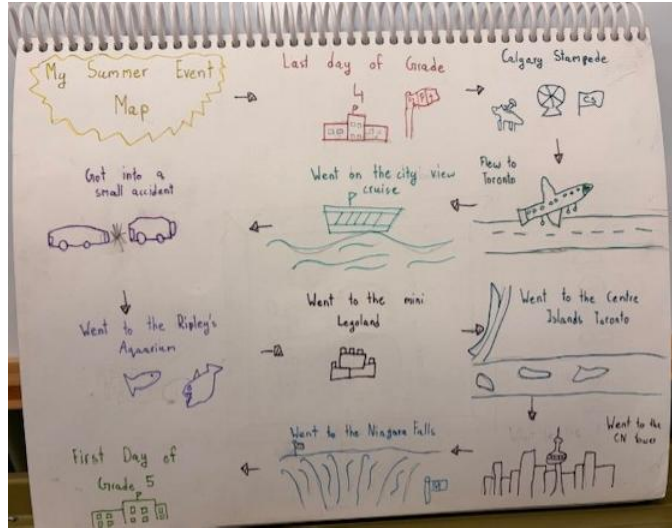 My Summer Event
Map
Last day of Grade
4
Calgary Stampede
CS
Flew to
Toronto
Went on the city view
cruise
Got into a
small accident
Went to the Ripley's
Aquarium
Went to the mini
Legoland
Went to the Centre
Islands Toronto
Went to the
CN tower
Went to the Niagara Falls
First Day of
Grade 5